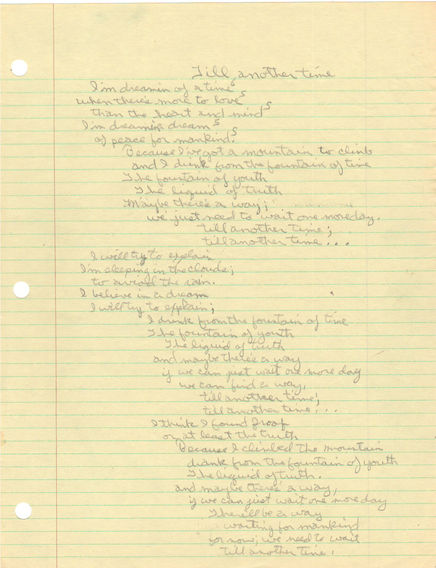 Till another time
I'm dreamin of a time
when there's more to love
than the heart and mind
I'm dreamin dreams
of peace for mankind.
Because I've got a mountain to climb
and I drink from the fountain of time
The fountain of youth
The liquid of truth
Maybe there's a way;
we just need to wait one more day.
till another time;
till another time...
I will try to explain
I'm sleeping in the clouds;
to avoid the rain.
I believe in a dream
I will try to explain;
I drink from the fountain of time
The fountain of youth
The liquid of truth
and maybe there's a way
if we can just wait one more day
we can find a way,
till another time;
till another time...
I think I found proof
or at least the truth
Because I climbed The mountain
drank from the fountain of youth
The liquid of truth.
and maybe there's a way,
if we can just wait one more day
There'll be a way
waiting for mankind
for now; we need to wait
till another time.